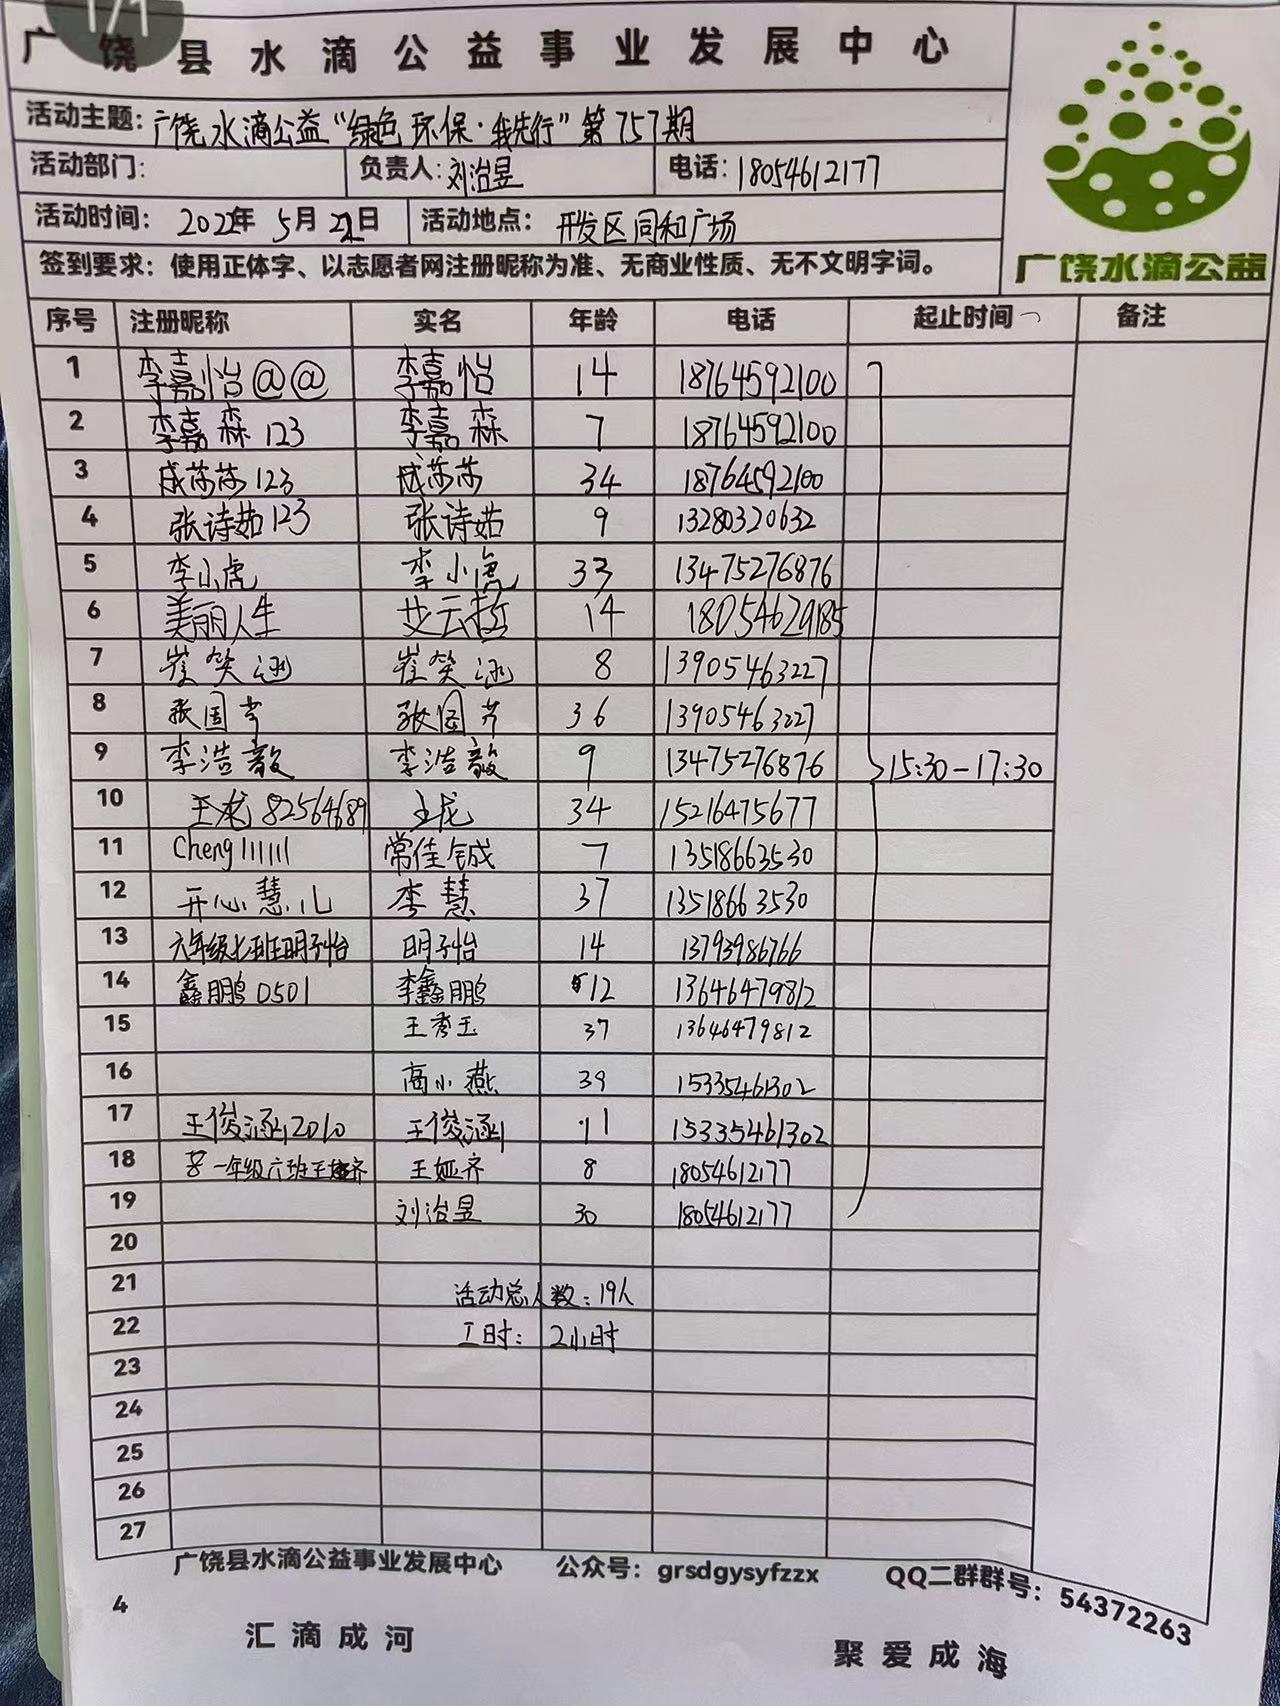 1/1
广饶县水滴公益事业发展中心
活动主题: 广饶水滴公益“绿色环保·我先行”第757期
活动部门: 负责人: 刘治昱 电话: 18054612177
活动时间: 2022年 5月 22日 活动地点: 开发区同和广场
签到要求: 使用正体字、以志愿者网注册昵称为准、无商业性质、无不文明字词。
广饶水滴公益
序号 注册昵称 实名 年龄 电话 起止时间 备注
1 李嘉怡@@ 李嘉怡 14 18764592100
2 李嘉森123 李嘉森 7 18764592100
3 成莎莎123 成莎莎 34 18764592100
4 张诗茹123 张诗茹 9 13280320632
5 李小虎 李小虎 33 13475276876
6 美丽人生 艾云哲 14 18054629185
7 崔笑迅 崔笑迅 8 13905463227
8 张国芳 张国芳 36 13905463227
9 李浩毅 李浩毅 9 13475276876 15:30-17:30
10 王龙82564689 王龙 34 15216475677
11 Cheng111111 常佳铖 7 13518663530
12 开心慧儿 李慧 37 13518663530
13 六年级七班明子怡 明子怡 14 13793986766
14 鑫鹏0501 李鑫鹏 12 13646479812
15 王秀玉 37 13646479812
16 高小燕 39 15335461302
17 王俊涵2010 王俊涵 11 15335461302
18 一年级六班王娅齐 王娅齐 8 18054612177
19 刘治昱 30 18054612177
20
21 活动总人数: 19人
22 工时: 2小时
23
24
25
26
27
广饶县水滴公益事业发展中心 公众号: grsdgysyfzzx QQ二群群号: 54372263
4
汇滴成河 聚爱成海